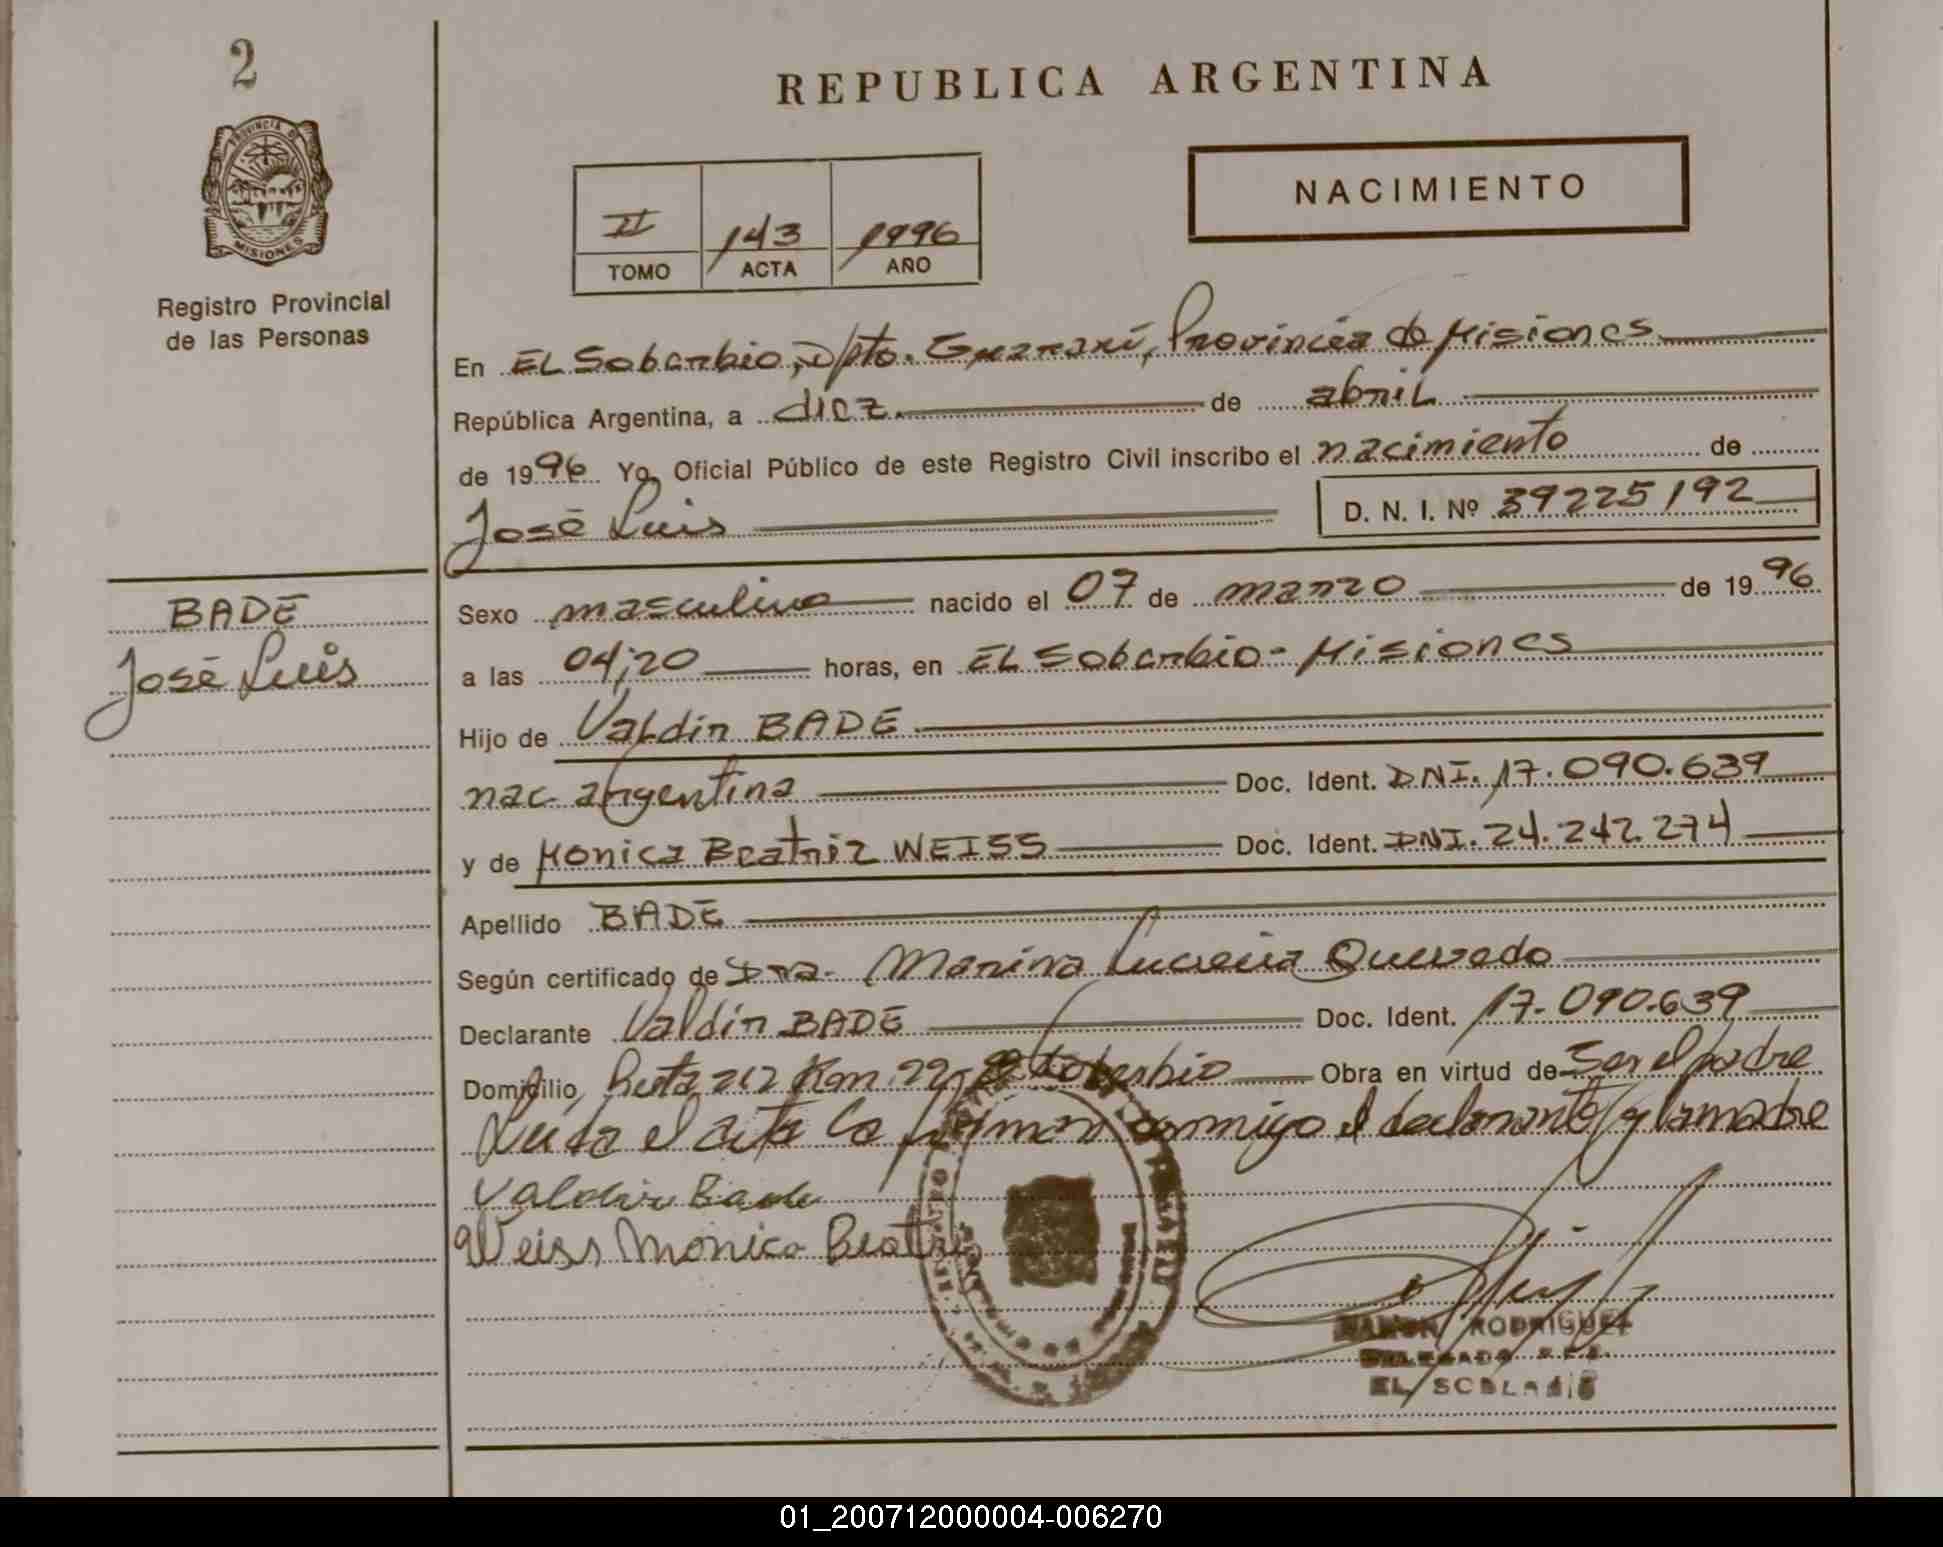 2
PROVINCIA DE
MISIONES
Registro Provincial
de las Personas
REPUBLICA ARGENTINA
II 143 1996
TOMO ACTA AÑO
NACIMIENTO
En EL Soberbio, Dpto. Guaraní, Provincia de Misiones
República Argentina, a diez de abril
de 1996 Yo, Oficial Público de este Registro Civil inscribo el nacimiento de
José Luis D. N. I. Nº 39225192
BADE
José Luis
Sexo masculino nacido el 07 de marzo de 1996
a las 04;20 horas, en EL Soberbio - Misiones
Hijo de Valdir BADE
nac argentina Doc. Ident. DNI. 17.090.639
y de Monica Beatriz WEISS Doc. Ident. DNI. 24.242.274
Apellido BADE
Según certificado de Dra. Marina Lucrecia Quevedo
Declarante Valdir BADE Doc. Ident. 17.090.639
Domicilio, Ruta 212 Km. 22 - El Soberbio Obra en virtud de ser el padre
Leida el acta la firman conmigo el declarante y la madre
Valdir Bade
Weiss Monica Beatriz
RAMON RODRIGUEZ
DELEGADO
EL SOBERBIO
01_200712000004-006270